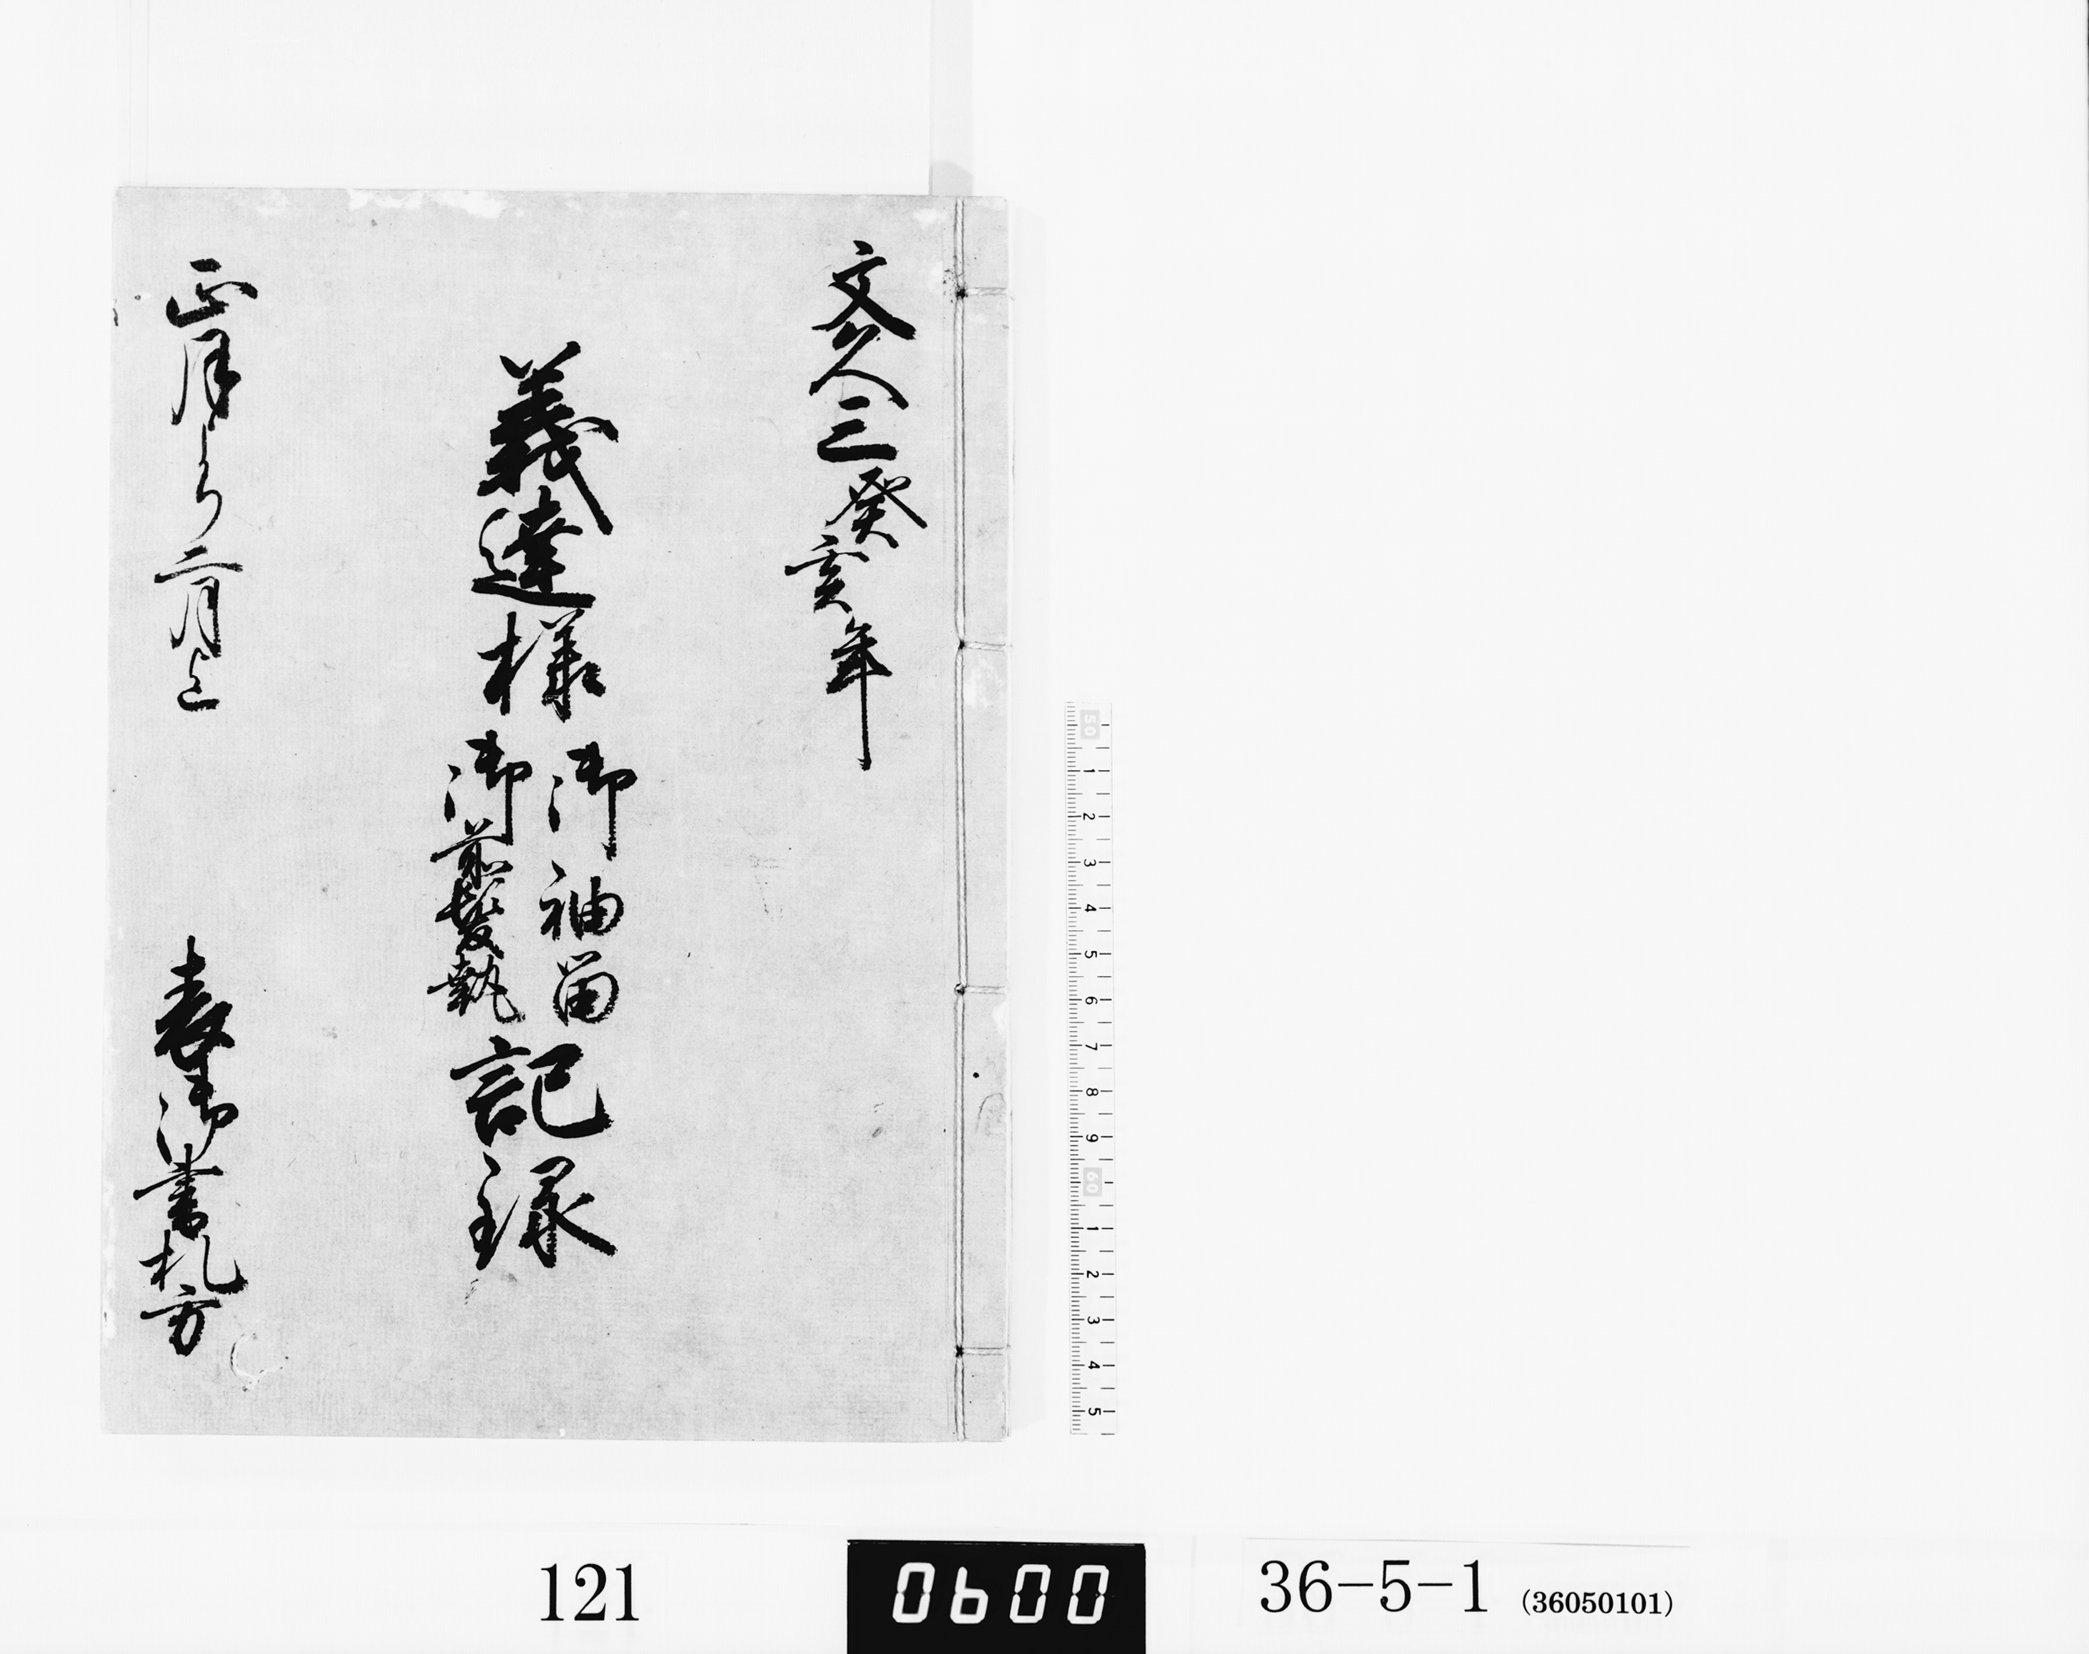 文久三癸亥年
義達様
御袖留
御前髪執
記録
正月より二月迄
表御書札方
50 1 2 3 4 5 6 7 8 9 60 1 2 3 4 5
121
0600
36-5-1 (36050101)